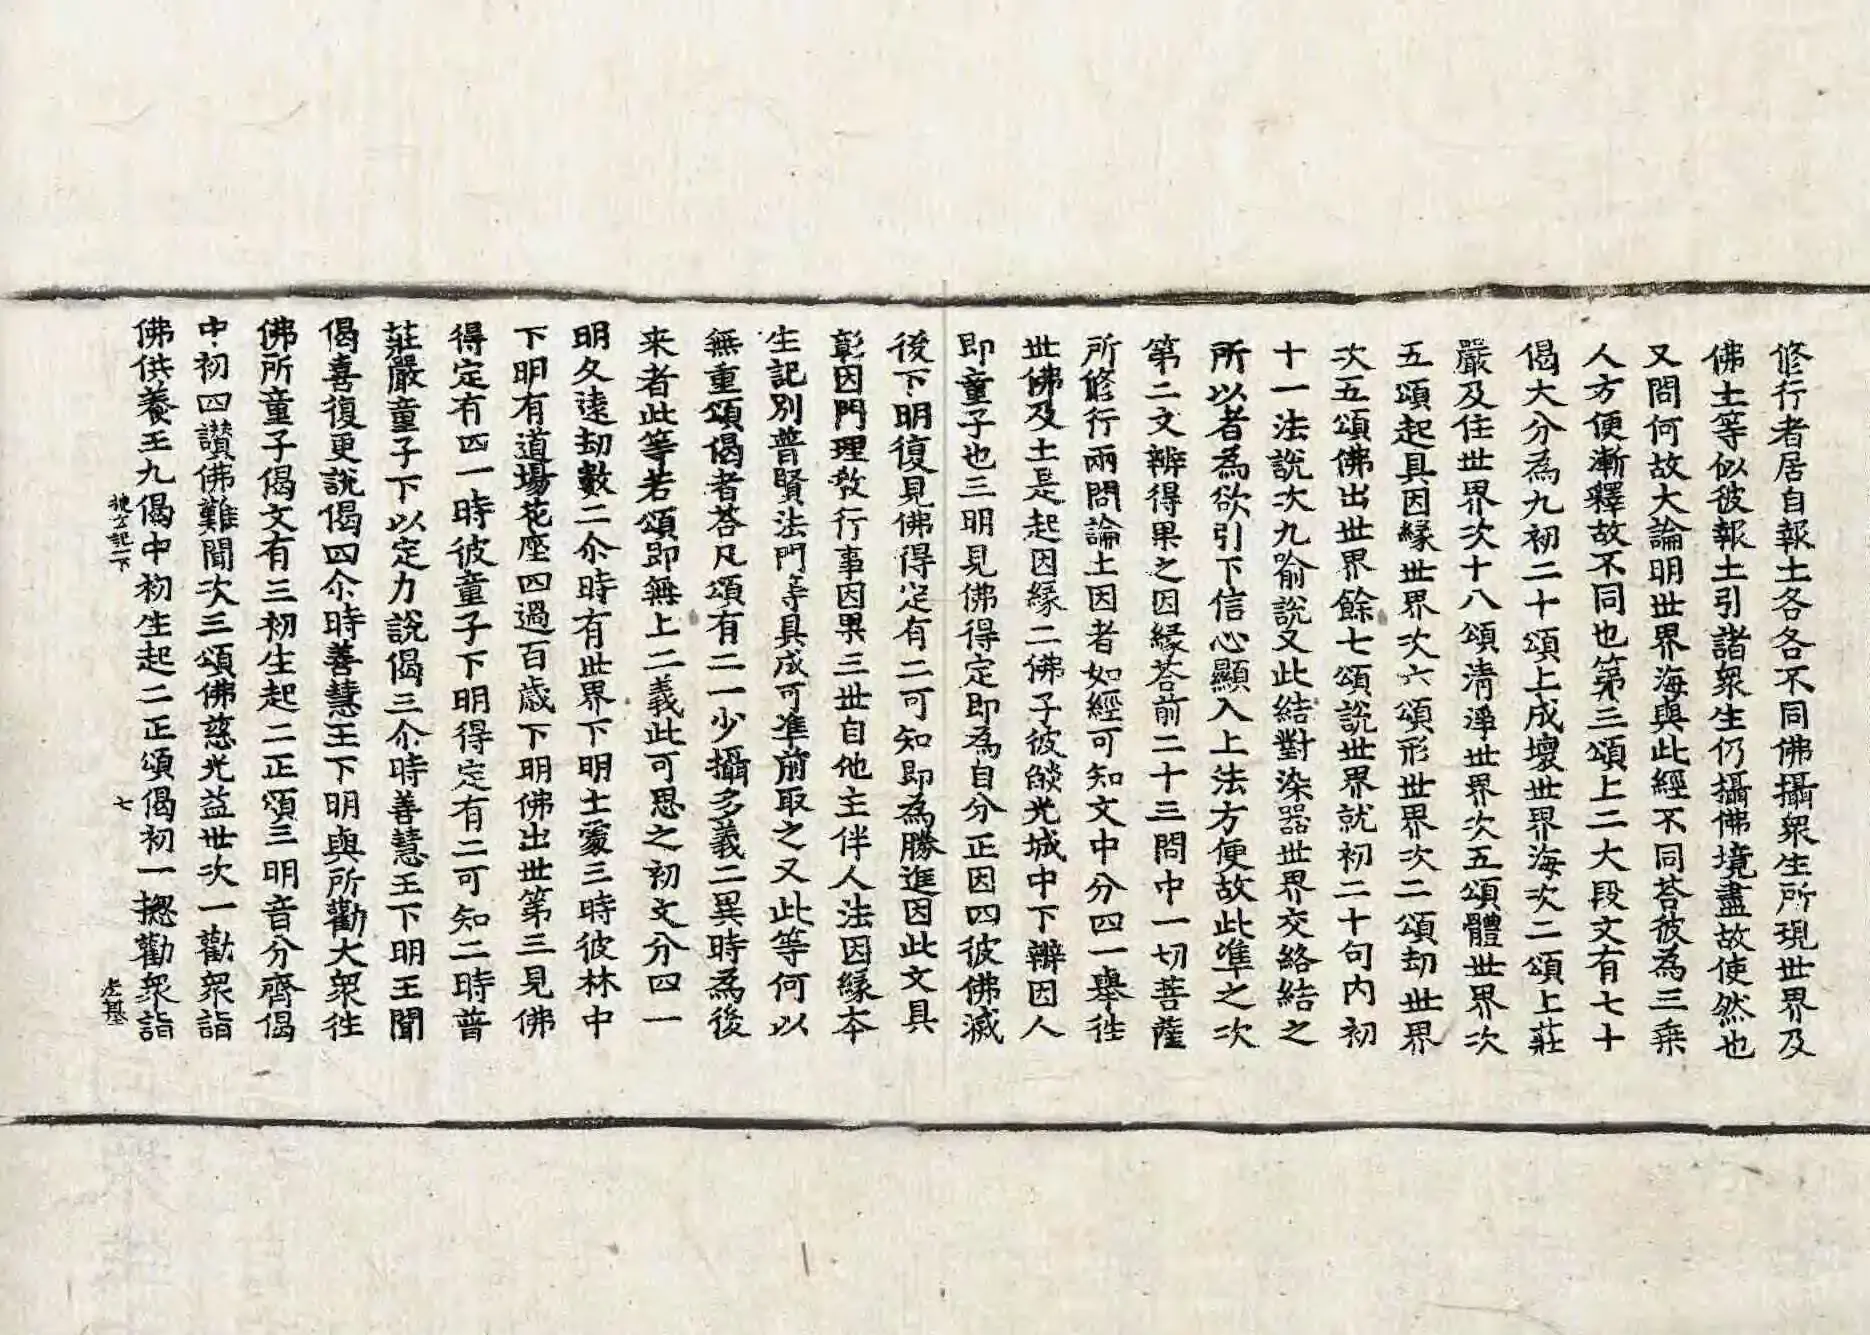 修行者居自報土各各不同佛攝衆生所現世界及
佛土等似彼報土引諸衆生仍攝佛境盡故使然也
又問何故大論明世界海與此經不同荅彼為三乗
人方便漸釋故不同也第三頌上二大段文有七十
偈大分為九初二十頌上成壞世界海次二頌上莊
嚴及住世界次十八頌清淨世界次五頌體世界次
五頌起具因縁世界次六頌形世界次二頌刧世界
次五頌佛出世界餘七頌說世界就初二十句内初
十一法說次九喻說又此結對染器世界交絡結之
所以者為欲引下信心顯入上法方便故此準之次
第二文辨得果之因縁荅前二十三問中一切菩薩
所修行兩問論土因者如經可知文中分四一舉徃
世佛及土是起因縁二佛子彼燄光城中下辨因人
即童子也三明見佛得定即為自分正因四彼佛滅
後下明復見佛得定有二可知即為勝進因此文具
彰因門理教行事因果三世自他主伴人法因縁本
生記別普賢法門等具成可準前取之又此等何以
無重頌偈者荅凡頌有二一少攝多義二異時為後
来者此等若頌即無上二義此可思之初文分四一
明久遠刼數二尒時有世界下明土㝵三時彼林中
下明有道場花座四過百歳下明佛出世第三見佛
得定有四一時彼童子下明得定有二可知二時普
莊嚴童子下以定力說偈三尒時善慧王下明王聞
偈喜復更說偈四尒時善慧王下明與所勸大衆徃
佛所童子偈文有三初生起二正頌三明音分齊偈
中初四讃佛難聞次三頌佛慈光益世次一勸衆詣
佛供養王九偈中初生起二正頌偈初一揔勸衆詣
七